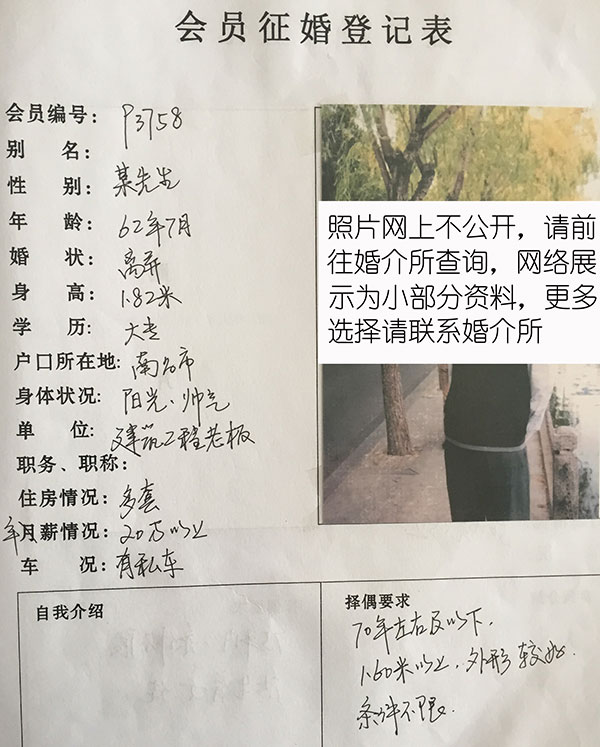 会员征婚登记表
会员编号: P3758
别 名:
性 别: 某先生
年 龄: 62年7月
婚 状: 离异
身 高: 1.82米
学 历: 大专
户口所在地: 南昌市
身体状况: 阳光、帅气
单 位: 建筑工程老板
职务、职称:
住房情况: 多套
年月薪情况: 20万以上
车 况: 有私车
照片网上不公开，请前
往婚介所查询，网络展
示为小部分资料，更多
选择请联系婚介所
自我介绍
择偶要求
70年左右及以下，
1.60米以上，外形较好.
条件不限.